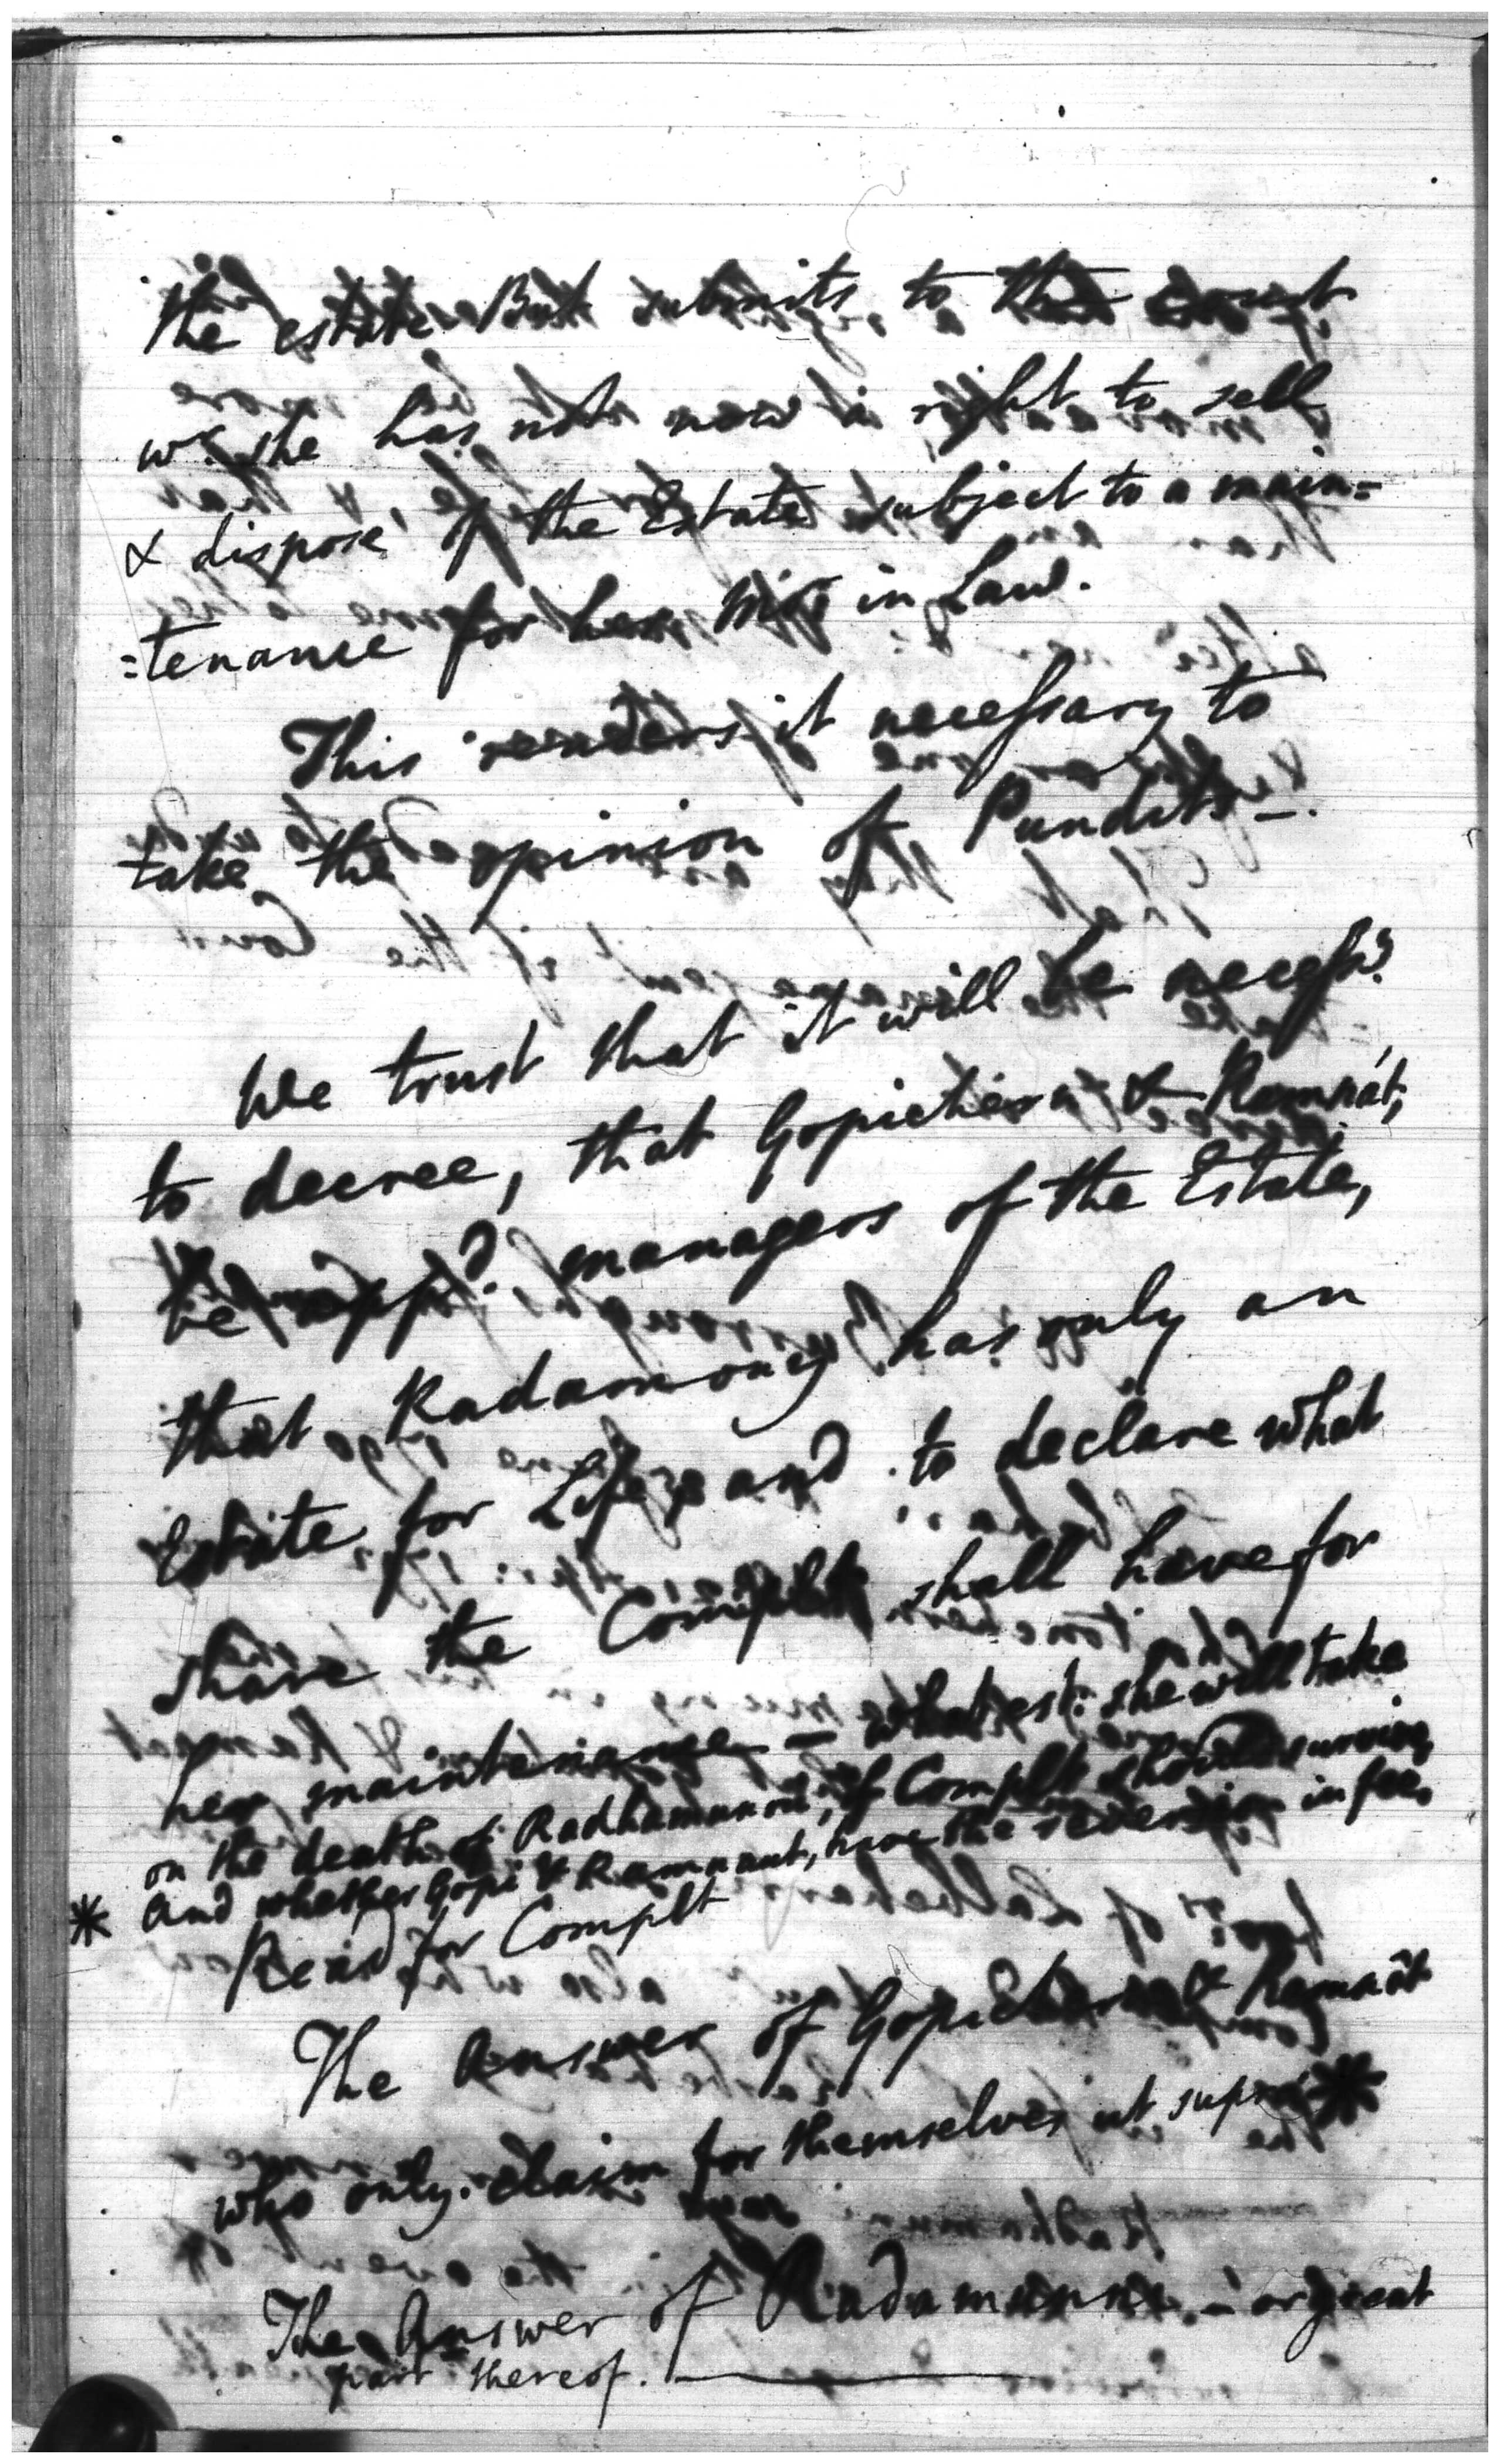 the estate. But submits, to the Court
wr. she has not now a right to sell
& dispose of the Estate subject to a main=
=tenance for her Mor in Law.
This renders it necessary to
take the opinion of Pundits —.
We trust that it will be necessy.
to decree, that Gopichern & Romnát,
be appd. managers of the Estate,
that Radamoney has only an
Estate for Life, and to declare what
share the Complt shall have for
her maintenance — what est: she will take
on the death of Radhamunni, if Complt should survive,
* and whether Gopi & Ramnaut, have the reversion in fee.
Read for Complt
The Answer of Gopichern & Ramnât
who only claim for themselves ut supra *
The Answer of Radamunni, — or great
part thereof. —